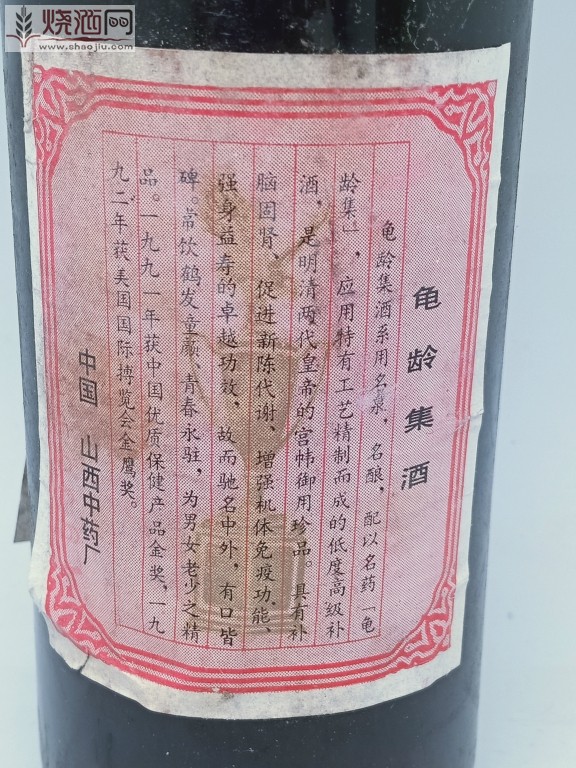 烧酒网
www.shaojiu.com
龟龄集酒
龟龄集酒系用名泉，名酿，配以名药「龟
龄集」，应用特有工艺精制而成的低度高级补
酒，是明清两代皇帝的宫帏御用珍品。具有补
脑固肾、促进新陈代谢、增强机体免疫功能、
强身益寿的卓越功效，故而驰名中外，有口皆
碑。常饮鹤发童颜、青春永驻，为男女老少之精
品。一九九一年获中国优质保健产品金奖，一九
九二年获美国国际博览会金鹰奖。
中国 山西中药厂